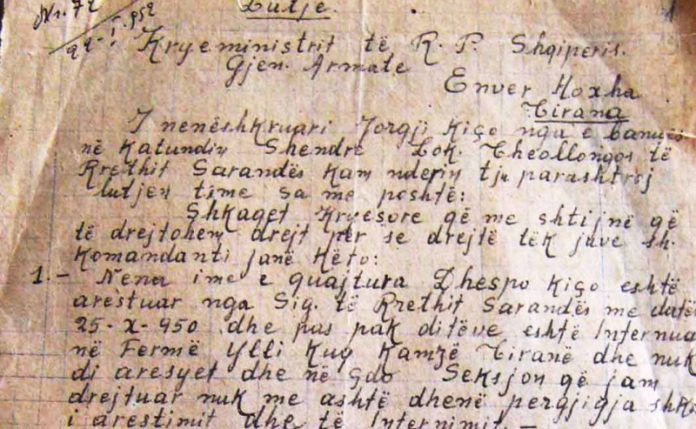 Nr. 72
22-I-952
Lutje.
Kryeministrit të R. P. Shqiperis.
Gjen. Armate
Enver Hoxha
Tirana
I nenëshkruari Jorgji Kiço nga e banues
në Katundin Shendre Lok. Theollongos të
Rrethit Sarandës kam nderin tju parashtroj
lutjen time sa me poshtë:
Shkaqet Kryesore që me shtijnë që
të drejtohem drejt për se drejtë tëk juve sh.
Komandanti janë Këto:
1.- Nena ime e quajtura Dhespo Kiço eshtë
arestuar nga Sig. të Rrethit Sarandës me datën
25-X-950 dhe pas pak ditëve eshtë Internua
në Fermë Ylli Kuq Kamzë Tiranë dhe nuk
di aresyet dhe në Gdo Seksjon që jam
drejtuar nuk me ashtë dhenë pergjigja shka
i arestimit dhe të Internimit. -